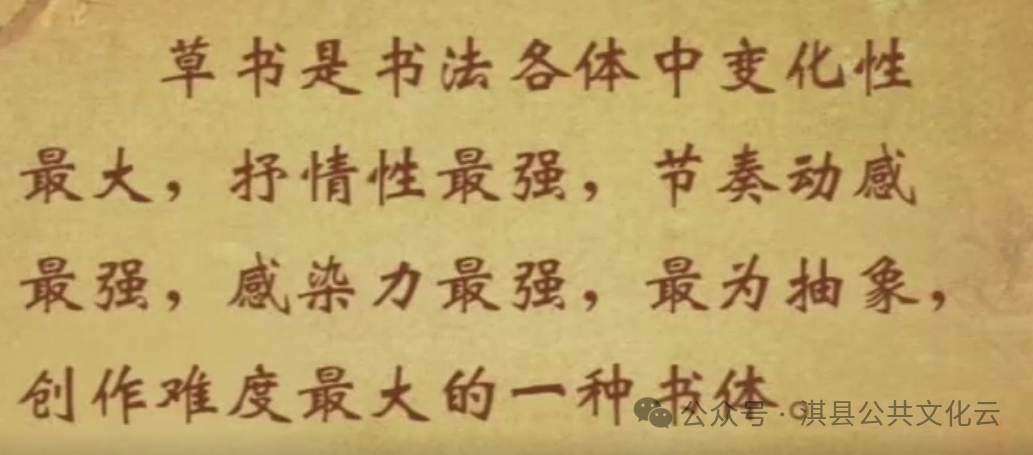 草书是书法各体中变化性
最大，抒情性最强，节奏动感
最强，感染力最强，最为抽象，
创作难度最大的一种书体。
公众号·淇县公共文化云